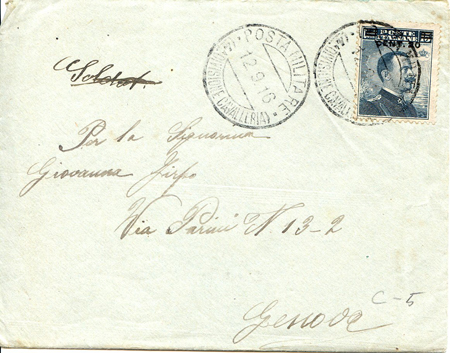 POSTA MILITARE
12.9.16
DIVISIONE CAVALLERIA
POSTE ITALIANE
Soldat.
Per la Signorina
Giovanna Firpo
Via Parini N. 13-2
Genova
C-5